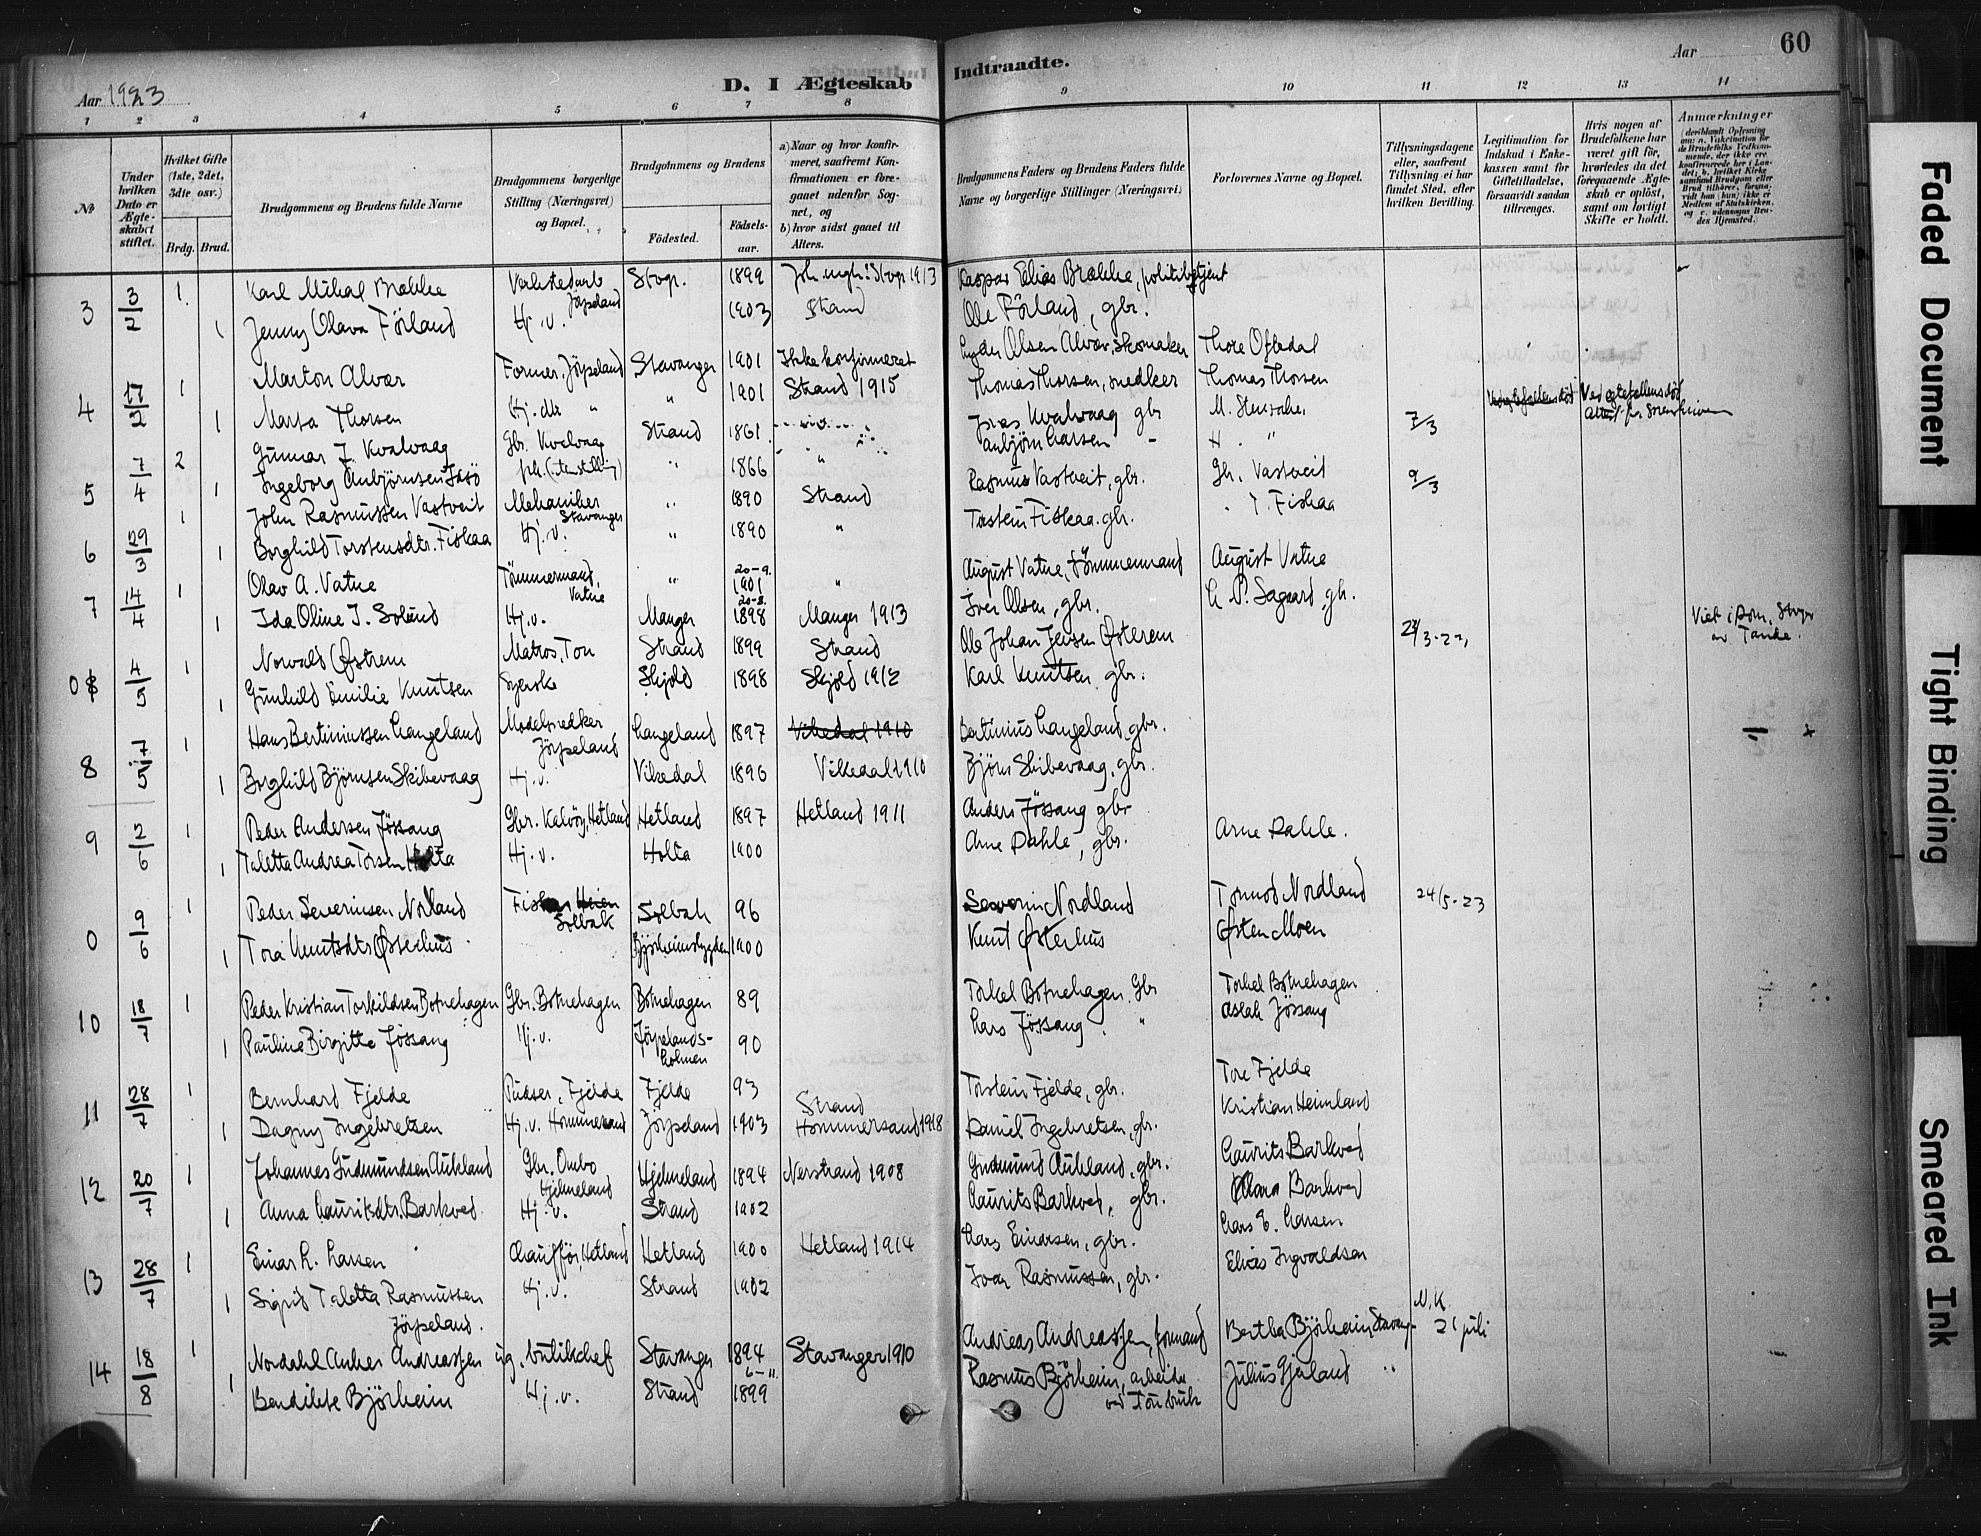 Aar 1923
D. I Ægteskab Indtraadte.
Aar 60
1 2 3 4 5 6 7 8 9 10 11 12 13 14
№
Under hvilken Dato er Ægteskabet stiftet.
Hvilket Gifte (1ste, 2det, 3die osv.)
Brdg. Brud.
Brudgommens og Brudens fulde Navne
Brudgommens borgerlige Stilling (Næringsvei) og Bopæl.
Brudgommens og Brudens
Fødested. Fødselsaar.
a) Naar og hvor konfirmeret, saafremt Konfirmationen er foregaaet udenfor Sognet, og
b) hvor sidst gaaet til Alters.
Brudgommens Faders og Brudens Faders fulde Navne og borgerlige Stillinger (Næringsvei)
Forlovernes Navne og Bopæl.
Tillysningsdagene eller, saafremt Tillysning ei har fundet Sted, efter hvilken Bevilling.
Legitimation for Indskud i Enkekassen samt for Giftetilladelse, forsaavidt saadan tiltrænges.
Hvis nogen af Brudefolkene har været gift før, hvorledes da det foregaaende Ægteskab er opløst, samt om lovligt Skifte er holdt.
Anmærkninger
3 3/2 1 Karl Mikal Brekke Verkstedarb Jörpeland Stvgr. 1899 Joh. mgh. Stvgr 1913 Kaspar Elias Brekke, politibetjent
1 Jenny Olava Förland Hj. v. 1903 Strand Ole Förland, gbr.
4 17/2 1 Marton Alvær Former, Jörpeland Stavanger 1901 Ikke konfirmeret Olsen Alvær, skomaker Thore Oftedal
1 Marta Thorsen Hj. " " 1901 Strand 1915 Thomas Thorsen, snedker Thomas Thorsen
5 7/4 2 Gunnar J. Kvalvaag Gbr. Kvalvaag Strand 1861 Jonas Kvalvaag gbr M. 7/3 Ved egtefellens död
1 Ingeborg Aubjörnsen Idsö " 1866 " Aubjörn Larsen -
6 29/3 1 John Rasmussen Vastveit Mekaniker Stavanger " 1890 Strand Rasmus Vastveit, gbr. Gbr. Vastveit 9/3
1 Borghild Torsteinsdtr. Fiskaa Hj. v. " 1890 " Torstein Fiskaa. gbr. T. Fiskaa
7 14/4 1 Olav A. Vatne Tömmermand, Vatne " 20-9. 1901 " August Vatne, tömmermand August Vatne
1 Ida Oline I. Solund Hj. v. Manger 20-8. 1898 Manger 1913 Iver Olsen, gbr. Sagaard, gbr.
0 8 4/5 1 Norvald Østrem Matros, Tou Strand 1899 Strand Ole Johan Jensen Østerem Viet i Dom. Stvgr av Tanke.
1 Gunhild Emilie Knutsen Syerske Skjold 1898 Skjold 1912 Karl Knutsen gbr.
8 7/5 1 Hans Bertiniussen Langeland Modelsnedker Jörpeland Langeland 1897 Vikedal 1910 Bertinius Langeland gbr.
1 Borghild Björnsen Skibevaag Hj. v. Vikedal 1896 Vikedal 1910 Björn Skibevaag, gbr.
9 2/6 1 Peder Andersen Jössang Gbr. Kalvöy, Hetland Hetland 1897 Hetland 1911 Anders Jössang gbr
1 Taletta Andrea Torsen Holta Hj. v. Holta 1900 Arne Dahle, gbr. Arne Dahle.
0 9/6 1 Peder Severinsen Norland Fisker Heien Solbak Solbak 96 Severin Nordland Tormod Nordland 24/5-23
1 Tora Knutsdtr Østerhus Björheimsbygden 1900 Knut Østerhus Østen Moen
10 18/7 1 Peder Kristian Torkildsen Botnehagen Gbr. Botnehagen Botnehagen 89 Torkel Botnehagen, Gbr Torkel Botnehagen
1 Pauline Birgitte Jössang Hj. v. Jörpelandsholmen 90 Lars Jössang " Aslak Jössang
11 28/7 1 Bernhard Fjelde Pudser, Fjelde Fjelde 93 Torstein Fjelde, gbr. Tore Fjelde
1 Dagny Ingebretsen Hj. v. Hommersand Jörpeland 1903 Strand Hommersand 1918 Daniel Ingebretsen, gbr. Kristian Heimland
12 20/7 1 Johannes Gudmundsen Aukland Gbr. Ombo Hjelmeland Hjelmeland 1894 Nerstrand 1908 Gudmund Aukland, gbr. Laurits Barkved
1 Anna Lauritsdtr. Barkved Hj. v. Strand 1902 Laurits Barkved, gbr. Barkved
13 28/7 1 Einar L. Larsen Chauffør, Hetland Hetland 1900 Hetland 1914 Lars Einarsen, gbr. Lars E. Larsen
1 Sigrid Taletta Rasmussen Jörpeland. Hj. v. Strand 1902 Ivar Rasmussen, gbr. Elias Ingvaldsen
14 18/8 1 Nordahl Anker Andreassen butikchef Stavanger 1894 Stavanger 1910 Andreas Andreassen, formand Bertha Björheim Stavanger N. K. 21 juli
1 Bendikte Björheim Hj. v. Strand 6-11. 1899 Rasmus Björheim, arbeider ved Tou bruk Julius Gjerland "
Faded Document
Tight Binding
Smeared Ink